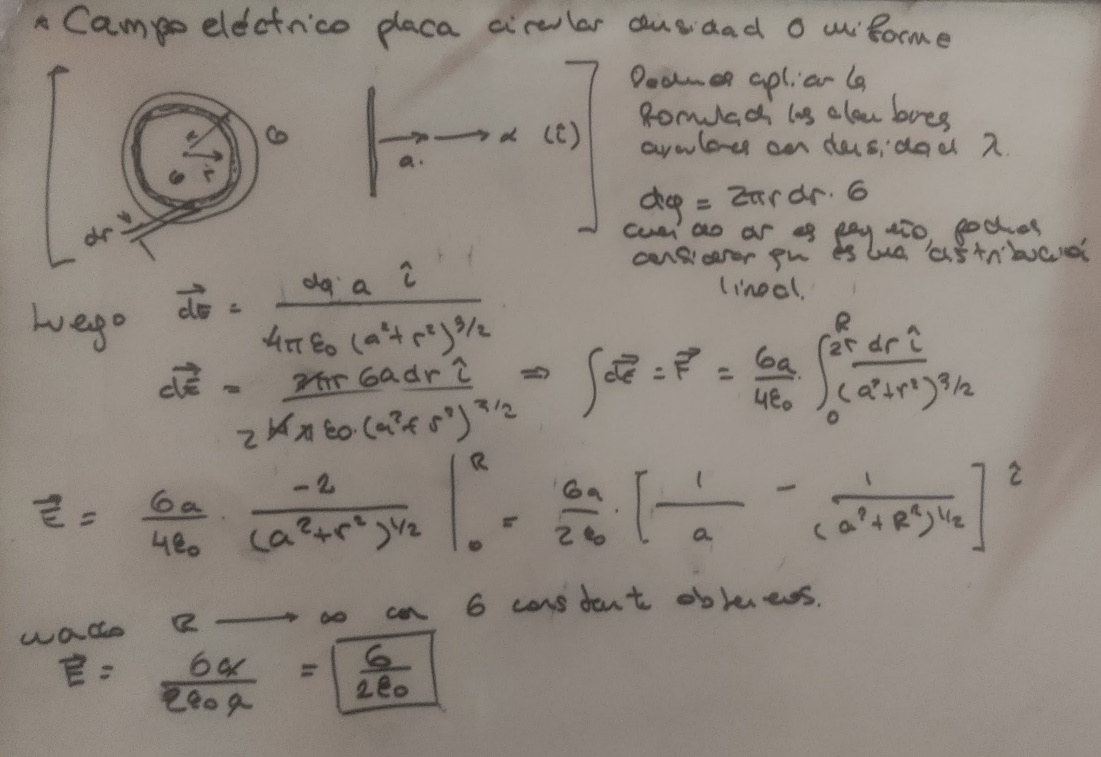 * Campo eléctrico placa circular densidad σ uniforme
Podemos aplicar la
formula de los alambres
circulares con densidad λ.
dq = 2πr dr · σ
cuando dr es pequeño, podemos
considerar que es una distribución
lineal.
r r σ dr
a. x (î)
Luego dE = dq · a î / 4πε0 (a²+r²)^3/2
dE = 2πr σa dr î / 2 4π ε0·(a²+r²)^3/2 ⇒ ∫dE = E = σa/4ε0 · ∫0^R 2r dr î / (a²+r²)^3/2
E = σa/4ε0 · -2/(a²+r²)^1/2 |0^R = σa/2ε0 · [1/a - 1/(a²+R²)^1/2] î
R → ∞ con σ constante obtenemos.
E = σa/2ε0a = σ/2ε0